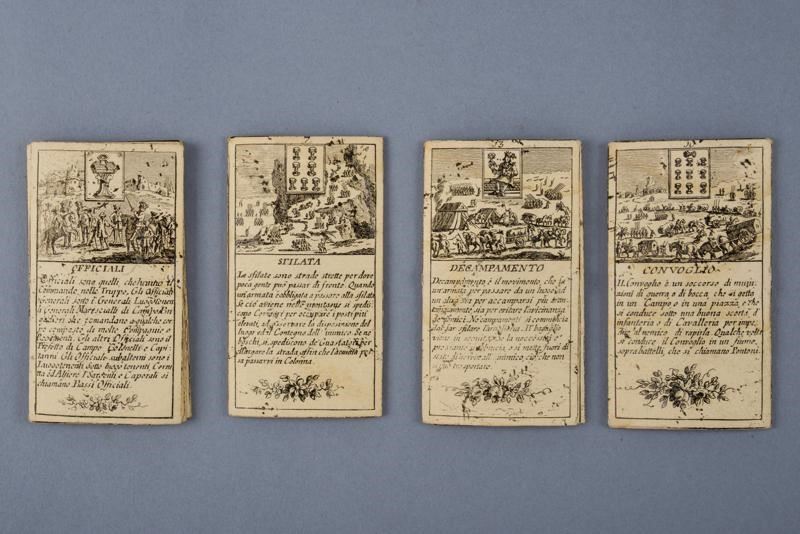 OFFICIALI
Officiali sono quelli, che hanno il
Commando nelle Truppe. Gli Officiali
Generali sono i Generali Luogotenen
ti Generali Marescialli di Campo.
po composto di molte Compagnie o
Reggimenti. Gli altri Officiali sono il
Prefetto di Campo Colonelli e Capi
tanni Gli Officiali subalterni sono i
Luogotenenti Sotto luogo tenenti Corne
tta ed Alfiere I Sargenti e Caporali si
chiamano Bassi Officiali.
SFILATA
Le sfilate sono strade strette per dove
poca gente può pasar di fronte. Quando
un'armata è obbligata a passare alla sfilata
Se ciò aviene nelle montagne si spedi
scono Corridori per occupare i posti più
elevati, ad osservare la disposizione del
luogo ed il Contegno dell' inimico Se ne
boschi, si spediscono de Guastatori per
allargare la strada affin che l'armata pos
sa pasarvi in Colonna.
13
DECAMPAMENTO
Decampamento è il movimento, che fa
un'armata, per passare da un luogo ad
un altro sia per accamparsi più
sia per evitare la vicinanza
de nemici. Ne campamenti si comincia
dal far sfilare l'artiglieria. Il bagaglio
viene in seguito, o se la necessità è
pressante si abbrucia o si mette fuori di
stato di servire all' inimico ciò che non
può trasportare.
11
CONVOGLIO
IL Convoglio è un soccorso di muni
zioni di guerra o di bocca che si getta
in un Campo o in una piazza, e che
si conduce sotto una buona scorta d'
infanteria o di Cavalleria per impe
dire al nemico di rapirla. Qualche volta
si conduce il Convoglio in un fiume,
sopra battelli, che si chiamano Pontoni.